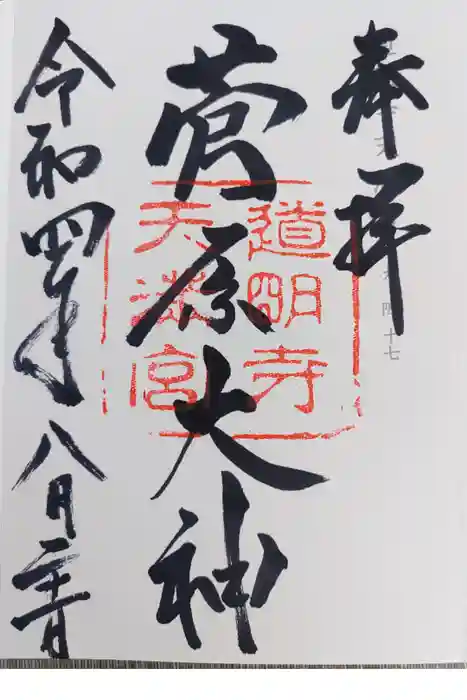 奉拝
菅原大神
道明寺
天満宮
令和四年八月
十七